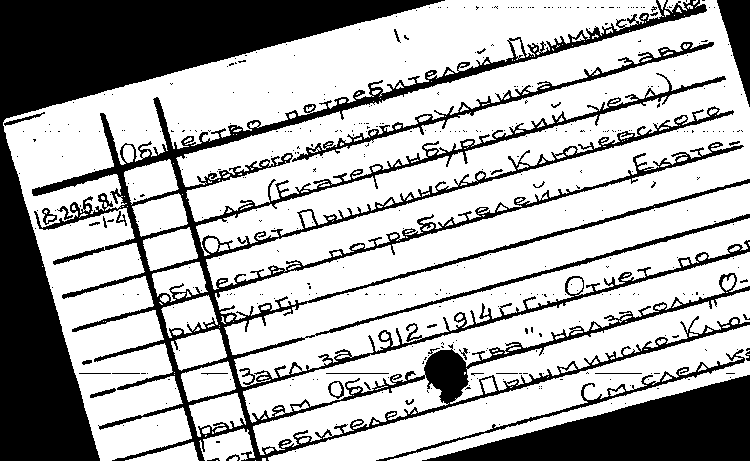 1.
Общество потребителей Пышминско-Клю-
чевского медного рудника и заво-
да (Екатеринбургский уезд).
18.296.8.19
-1-4
Отчет Пышминско-Ключевского
общества потребителей... , Екате-
ринбург,
Загл. за 1912-1914 г.г.: "Отчет по оп
рациям Общес тва"; надзагол.: "О-
потребителей Пышминско-Ключ
См. след. ка